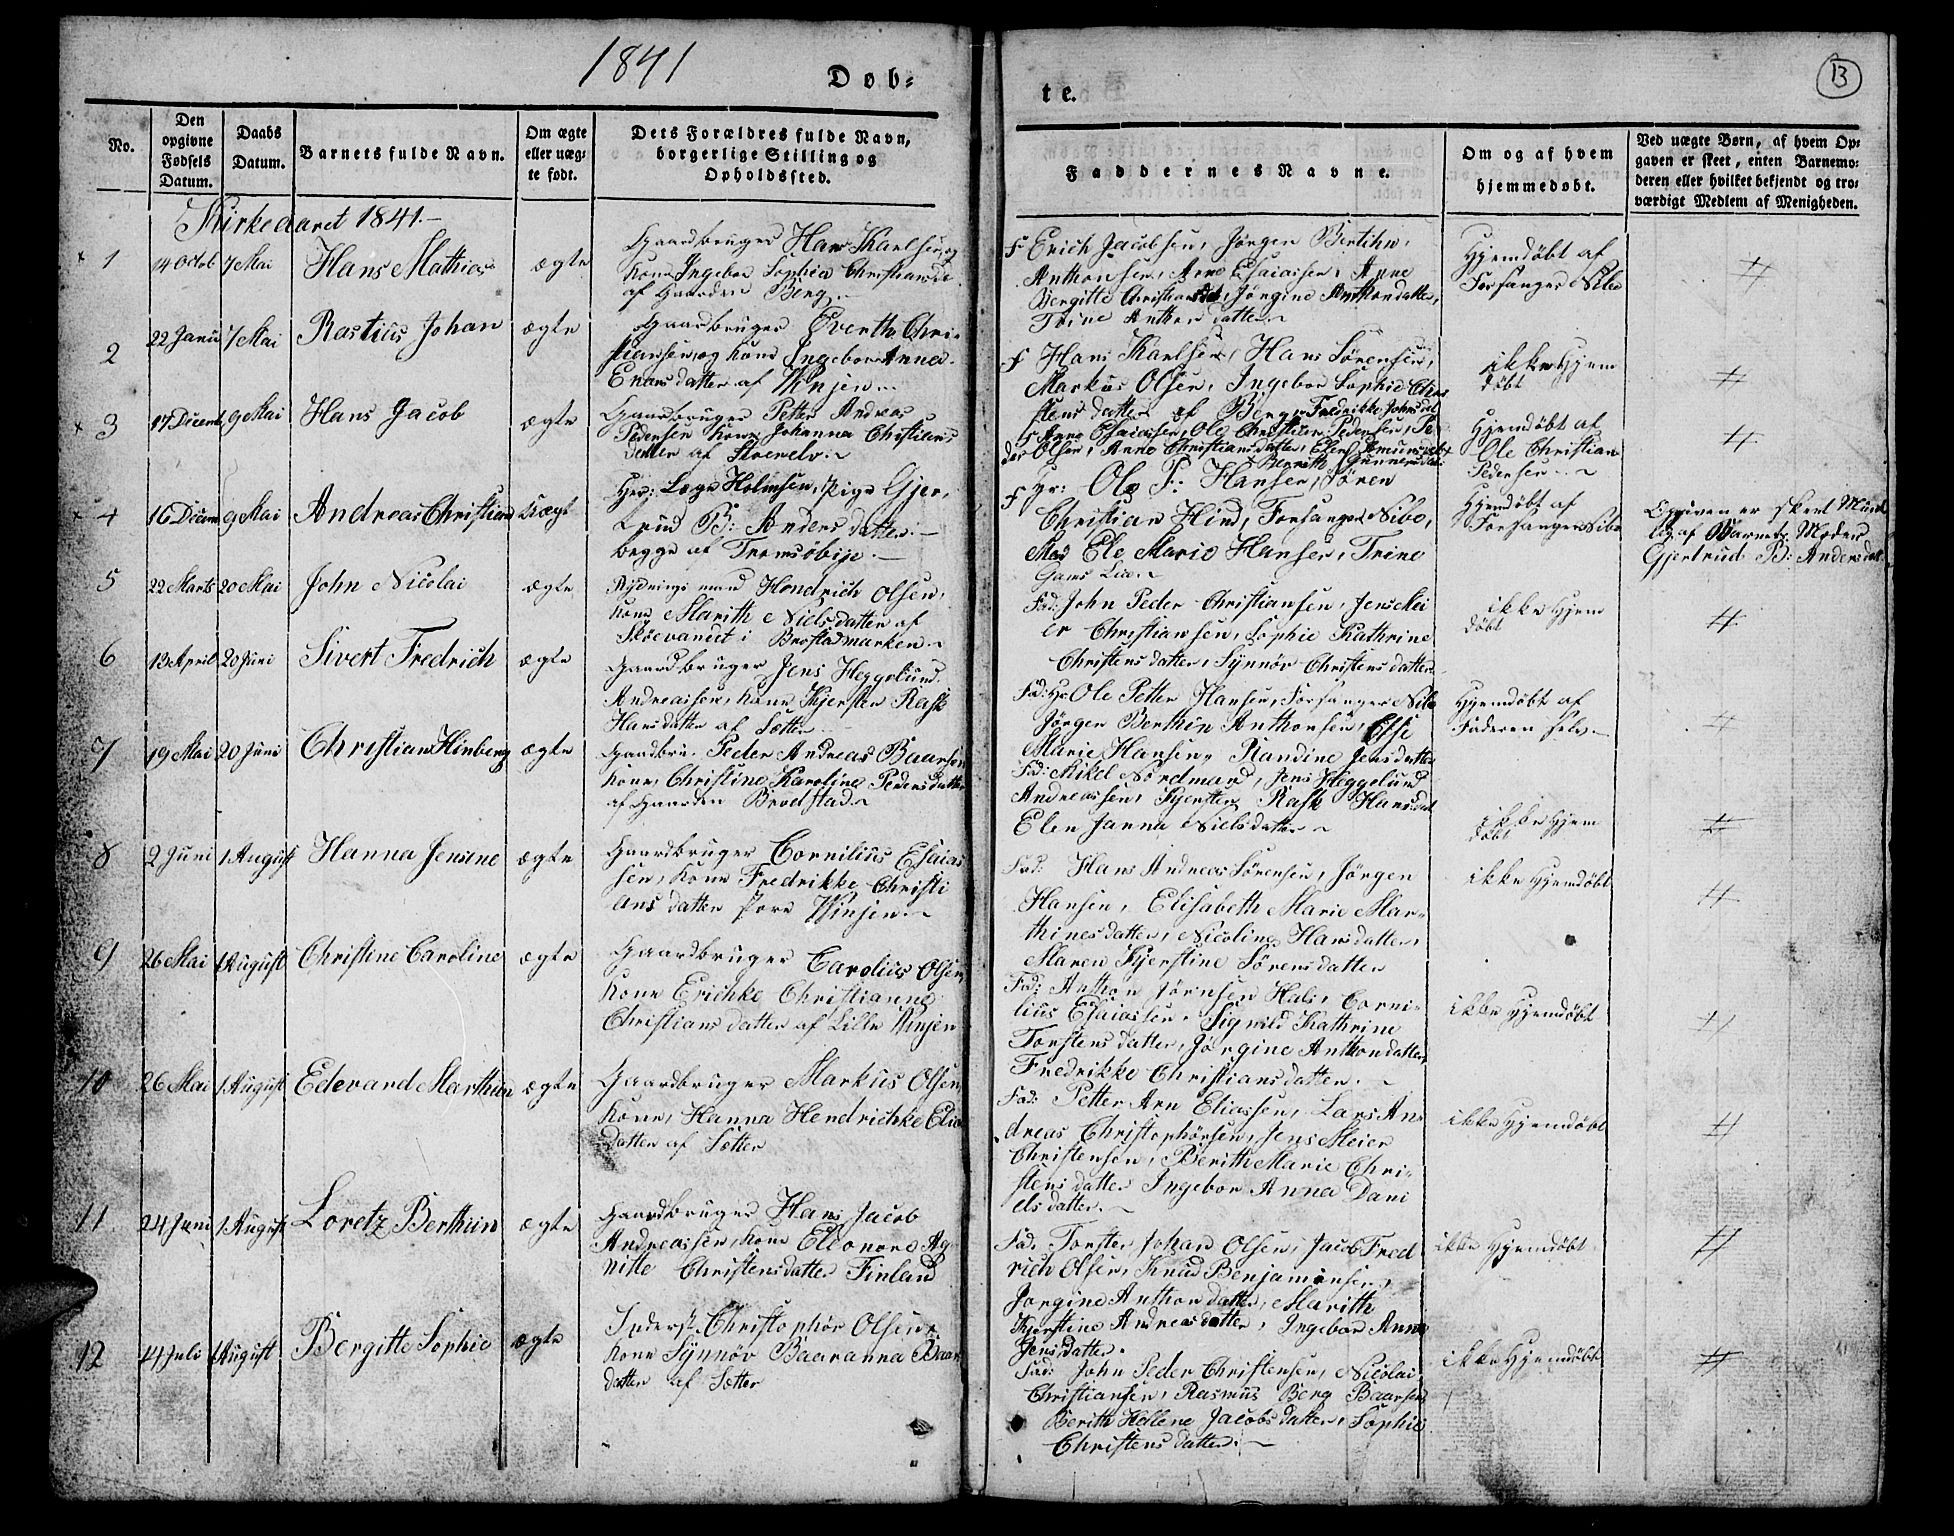 1841
Døb-
te.
13
No.
Den opgivne Fødsels Datum.
Daabs Datum.
Barnets fulde Navn.
Om ægte eller uægte født.
Dets Forældres fulde Navn, borgerlige Stilling og Opholdssted.
Faddernes Navne.
Om og af hvem hjemmedøbt.
Ved uægte Børn, af hvem Op-
gaven er skeet, enten Barnemo-
deren eller hvilket bekjendt og tro-
værdigt Medlem af Menigheden.
Kirkeaaret 1841.-
1 14 Octob 7 Mai Hans Mathias ægte
Gaardbruger Hans Karlsen, og
Kone Ingebor Sophia Christiansd
af Gaarden Berg.-
F Erich Jacobsen, Jørgen Berthin,
Anthonsen, Arne Esaiassen, Anne
Bergitte Christiansdat, Jørgine Anthondatter,
Trine Anthondatter.-
Hjemdøbt af
Forsanger Nibe
#
2 22 Janu 7 Mai Rastius Johan ægte
Gaardbruger Everth Chri-
stiansen, og Kone Ingebor Anna
Enarsdatter af Winjen.-
F Hans Karlsen, Hans Sørensen,
Markus Olsen, Ingebor Sophie Chri
stensdatter af Berg, Fredrikke Johnsdat
ikke Hjem
døbt
#
3 17 Decemb 9 Mai Hans Jacob ægte
Gaardbruger Petter Andreas
Pedersen Kone Johanna Christians
datter af
F Arne Esaiassen, Ole Christian Pedersen, Pe-
der Olsen, Anne Christiansdatter, Elen
Berrith Gunnersdat
Hjemdøbt af
Ole Christian
Pedersen.-
#
4 16 Decem 9 Mai Andreas Christian uægt
Hr: Læge Holmsen, Pige Gjer-
trud B: Andersdatter.-
begge af Tromsøbye.-
F Hr: Ole P: Hansen, Søren
Christian Hind, Forsanger Nibe,
Mad Ele Marie Hansen, Trine
Hjemdøbt af
Forsanger Nibe
Opgiven er skeet Mund
lig af Barnets Moder
Gjertrud B: Andersdat
5 22 Marts 20 Mai John Nicolai ægte
Rydningsmand Hendrich Olsen,
Kone Marith Nielsdatter af
i Brostadmarken.-
Fad: John Peder Christiansen, Jens Mei
er Christiansen, Sophie Kathrine
Christensdatter, Synnøv Christensdatter
ikke Hjem
døbt
#
6 13 April 20 Juni Sivert Fredrich ægte
Gaardbruger Jens Heggelund
Andreassen, Kone Kjersten Rask
Hansdatter af Sætter.-
Fad: Hr Ole Petter Hansen, Forsanger Nibe
Jørgen Berthin Anthonsen, Else
Marie Hansen, Randine Jensdatter
Hjemdøbt af
Faderen selv.-
#
7 19 Mai 20 Juni Christian Hinberg ægte
Gaardbru. Peder Andreas Baarsen
Kone, Christine Karoline Pedersdatter
af Gaarden Brodstad.-
Fad: Mikel Nordmand, Jens Heggelund
Andreassen, Kjersten Rask Hansdat
Elen Janna Nielsdatter.-
ikke Hjem
døbt
#
8 2 Juni 1 August Hanna Jensine ægte
Gaardbruger Cornilius Esaias
sen, Kone Fredrikke Christi
ansdatter Store Winjen.-
Fad: Hans Andreas Sørensen, Jørgen
Hansen, Elisabeth Marie Mar-
thinesdatter, Nicoline Hansdatter,
Maren Kjerstine Sørensdatter
ikke Hjemdøbt
#
9 26 Mai 1 August Christine Caroline ægte
Gaardbruger Carolius Olsen,
Kone Erichke Christianne
Christiansdatter af Lille Winjen
Fad: Anthon Jørnsen Hals, Corni-
lius Esaiassen, Sigvild Kathrine
Torstensdatter, Jørgine Anthondatter,
Fredrikke Christiansdatter.-
ikke Hjemdøbt
#
10 26 Mai 1 August Edevard Marthin ægte
Gaardbruger Markus Olsen
Kone, Hanna Hendrichke Elia
datter af Sætter
Fad: Petter Arn Eliassen, Lars An-
dreas Christophersen, Jens Meier
Christensen, Berith Marie Chri-
stensdatter Ingebor Anna Dani
elsdatter.-
ikke Hjemdøbt
#
11 24 Juni 1 August Loretz Berthin ægte
Gaardbruger Hans Jacob
Andreassen, Kone Eleonora Ag-
nitte Christensdatter Finland
Fad. Torsten Johan Olsen, Jacob Fred
rich Olsen, Knud Benjaminsen,
Jørgine Anthondatter, Marith
Kjerstine Andreasdatter, Ingebor Anna
Jensdatter.
ikke Hjemdøbt
#
12 14 Juli 1 August Bergitte Sophie ægte
Inderst. Christophør Olsen,
Kone Synnøv Baaranna Baar
datter af Sætter
Fad: John Peder Christensen, Nicolai
Christiansen, Rasmus Berg Baarsen
Berith Hellene Jacobsdatter, Sophie
Christensdatter.-
ikke Hjemdøbt
#